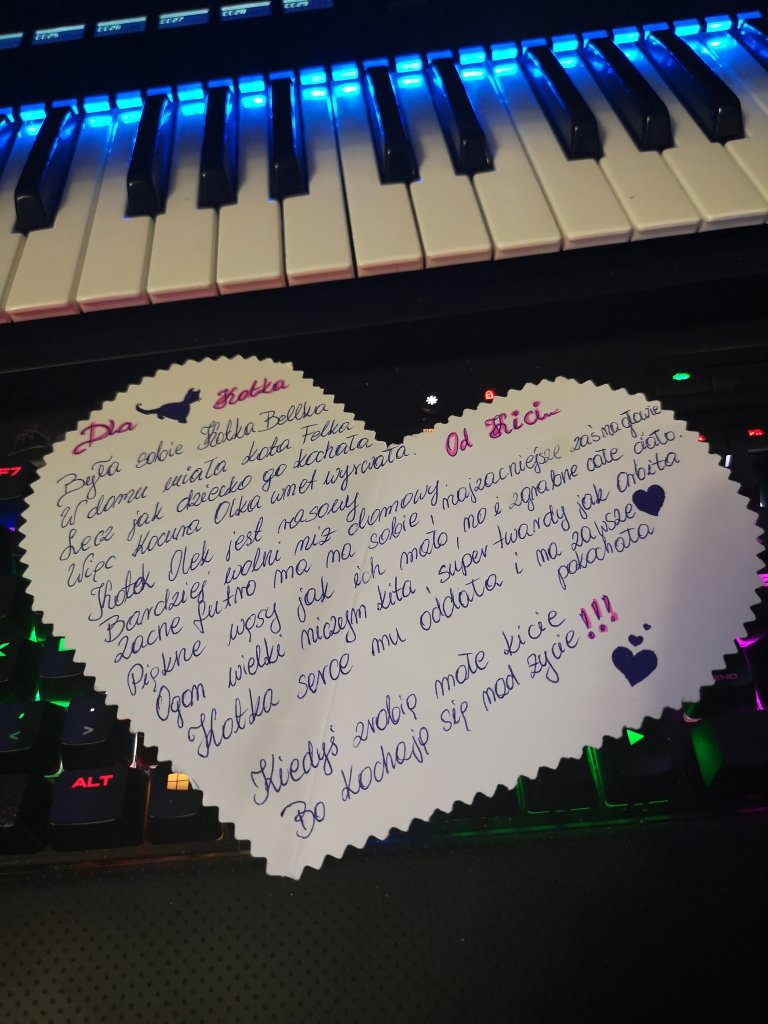 Dla Kotka
Od Kici...
Była sobie Kotka Bellka
W domu miała kota Felka
Lecz jak dziecko go kochała
Więc Kocura Olka wnet wyrwała.
Kotek Olek jest rasowy
Bardziej wolni niż domowy.
Zacne futro ma na sobie, najzacniejsze zaś na głowie
Piękne wąsy jak ich mało, no i zgrabne całe ciało.
Ogon wielki niczym kita, super twardy jak Orbita
Kotka serce mu oddała i na zawsze
pokochała
Kiedyś zrobię małe kicie
Bo kochają się nad życie!!!
F7
ALT
END